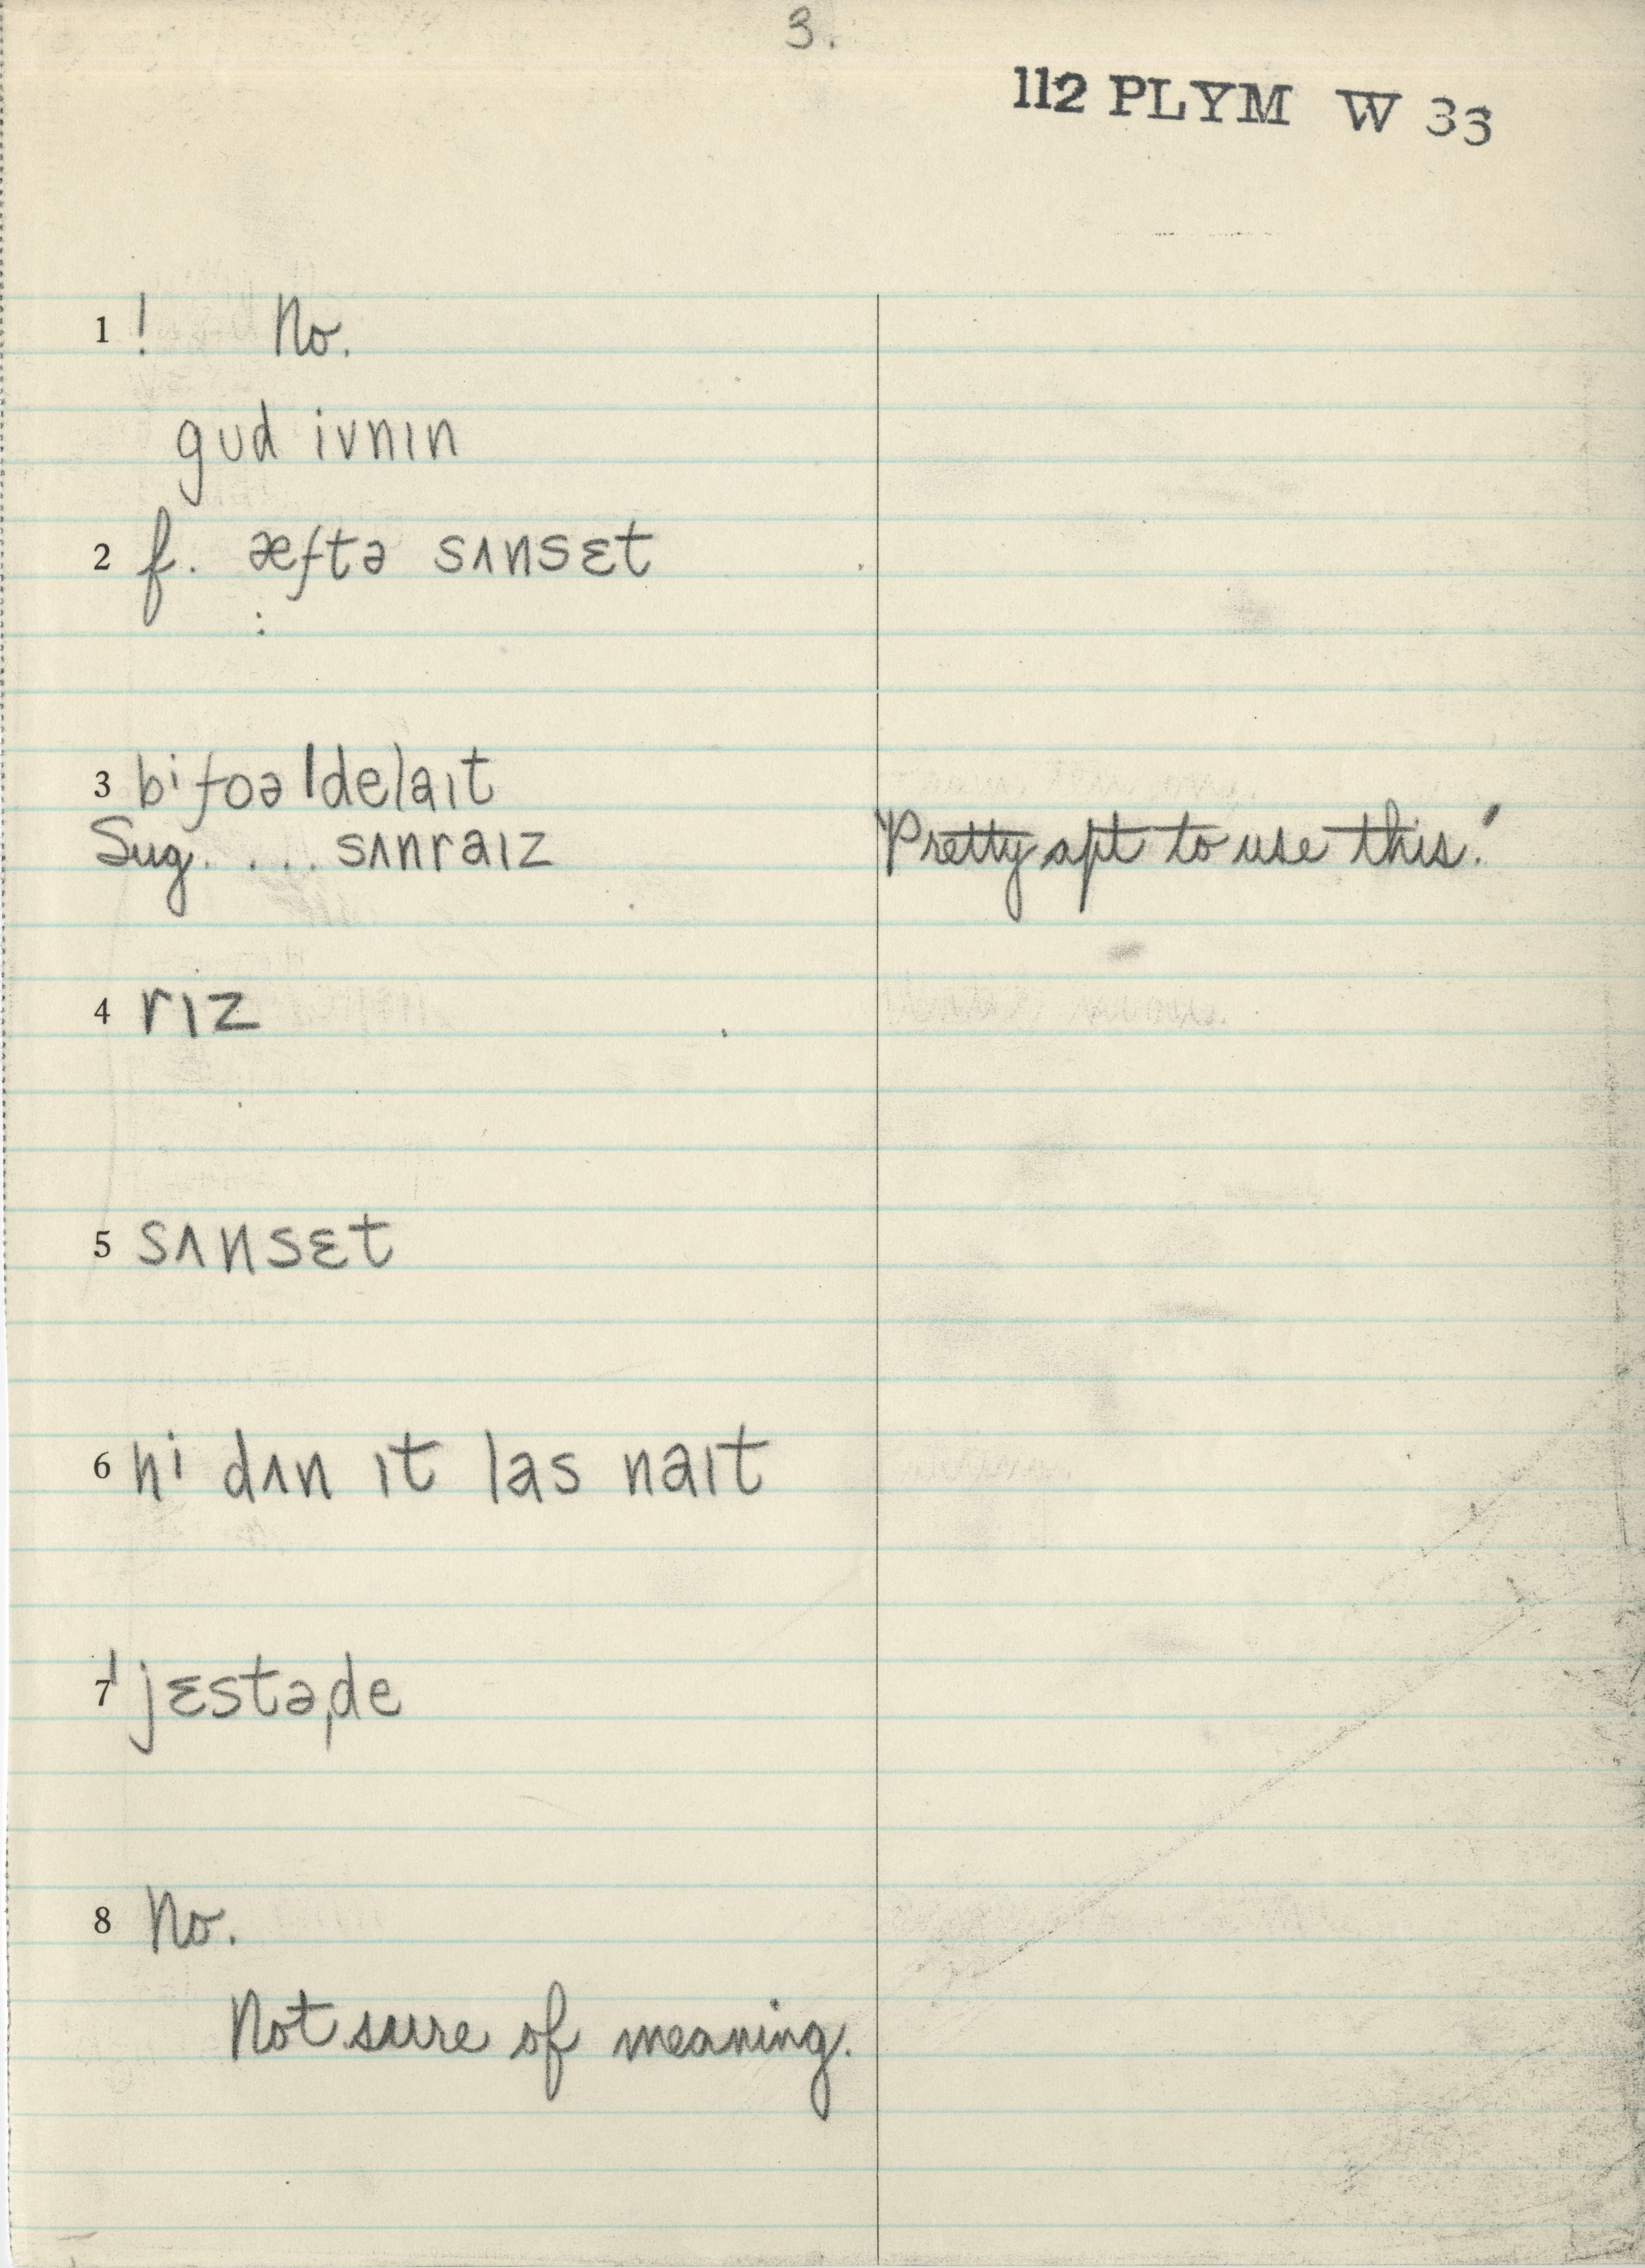 3.
112 PLYM W 33
1 ! No.
gud ivnɪn
2 f. æftə sʌnsɛt
:
3 bifoə ˈdelaɪt
Sug. ... sʌnraɪz "Pretty apt to use this."
4 rɪz
5 sʌnsɛt
6 hi dʌn ɪt las naɪt
7 ˈjɛstəˌde
8 No.
Not sure of meaning.